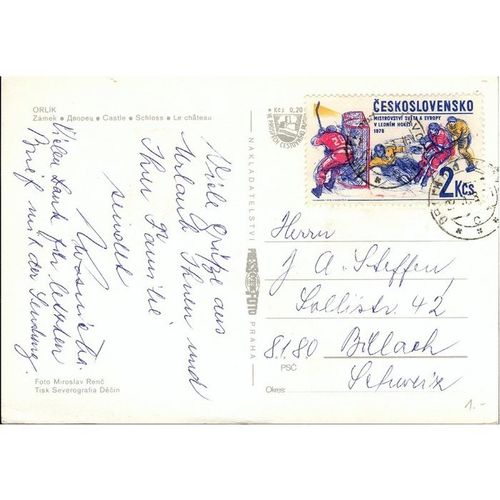 ORLÍK
Zámek • Дворец • Castle • Schloss • Le château
Viele Grüße aus
Urlaub Ihnen und
Ihrer Familie
sendet
Vielen Dank für letzten
Brief mit der Sendung.
Foto Miroslav Renč
Tisk Severografia Děčín
NAKLADATELSTVÍ
PRAHA
Kčs 0,20
ČESKOSLOVENSKO
MISTROVSTVÍ SVĚTA A EVROPY
V LEDNÍM HOKEJI
1978
2 Kčs
Herrn
J A. Steffen
Sollistr. 42
8180 Bülach
PSČ
Schweiz
Okres:
1.-